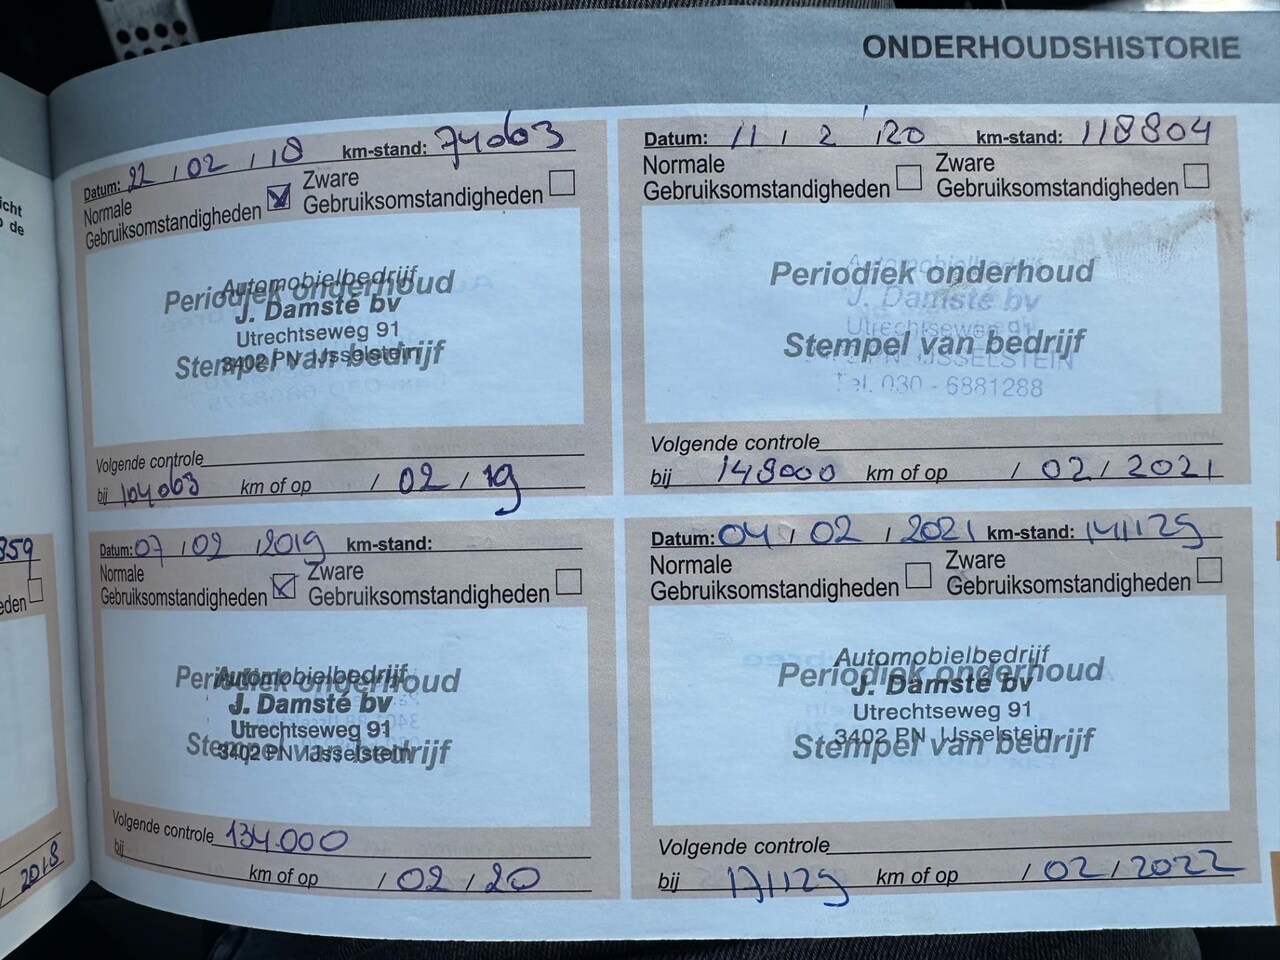 ONDERHOUDSHISTORIE
icht
de
359
eden
2018
Datum: 22 / 02 / 18 km-stand: 74063
Normale
Gebruiksomstandigheden
Zware
Gebruiksomstandigheden
Automobielbedrijf
Periodiek onderhoud
J. Damsté bv
Utrechtseweg 91
3402 PN IJsselstein
Stempel van bedrijf
Volgende controle
bij 104063 km of op / 02 / 19
Datum: 11 / 2 / 20 km-stand: 118804
Normale
Gebruiksomstandigheden
Zware
Gebruiksomstandigheden
Periodiek onderhoud
J. Damsté bv
Utrechtseweg 91
Stempel van bedrijf
IJSSELSTEIN
Tel. 030 - 6881288
Volgende controle
bij 148000 km of op / 02 / 2021
Datum: 07 / 02 / 2019 km-stand:
Normale
Gebruiksomstandigheden
Zware
Gebruiksomstandigheden
Automobielbedrijf
Periodiek onderhoud
J. Damsté bv
Utrechtseweg 91
3402 PN IJsselstein
Stempel van bedrijf
Volgende controle 134.000
bij
km of op / 02 / 20
Datum: 04 / 02 / 2021 km-stand: 141129
Normale
Gebruiksomstandigheden
Zware
Gebruiksomstandigheden
Automobielbedrijf
Periodiek onderhoud
J. Damsté bv
Utrechtseweg 91
3402 PN IJsselstein
Stempel van bedrijf
Volgende controle
bij 171129 km of op / 02 / 2022